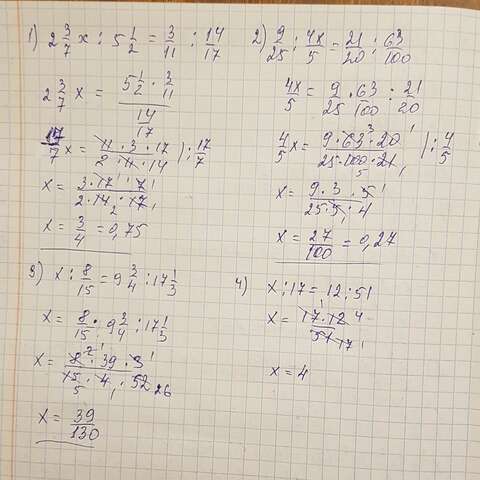 1) 2 3/7 x : 5 1/2 = 3/11 : 14/17
2 3/7 x = (5 1/2 · 3/11) / (14/17)
17/7 x = (11 · 3 · 17) / (2 · 11 · 14) | : 17/7
x = (3 · 17 · 7) / (2 · 14 · 17)
x = 3/4 = 0,75
2) 9/25 : 4x/5 = 21/20 : 63/100
4x/5 = 9/25 · 63/100 : 21/20
4/5 x = (9 · 63 · 20) / (25 · 100 · 21) | : 4/5
x = (9 · 3 · 5) / (25 · 5 · 4)
x = 27/100 = 0,27
3) x : 8/15 = 9 3/4 : 17 1/3
x = 8/15 · 9 3/4 : 17 1/3
x = (8 · 39 · 3) / (15 · 4 · 52)
x = 39/130
4) x : 17 = 12 : 51
x = (17 · 12) / 51
x = 4